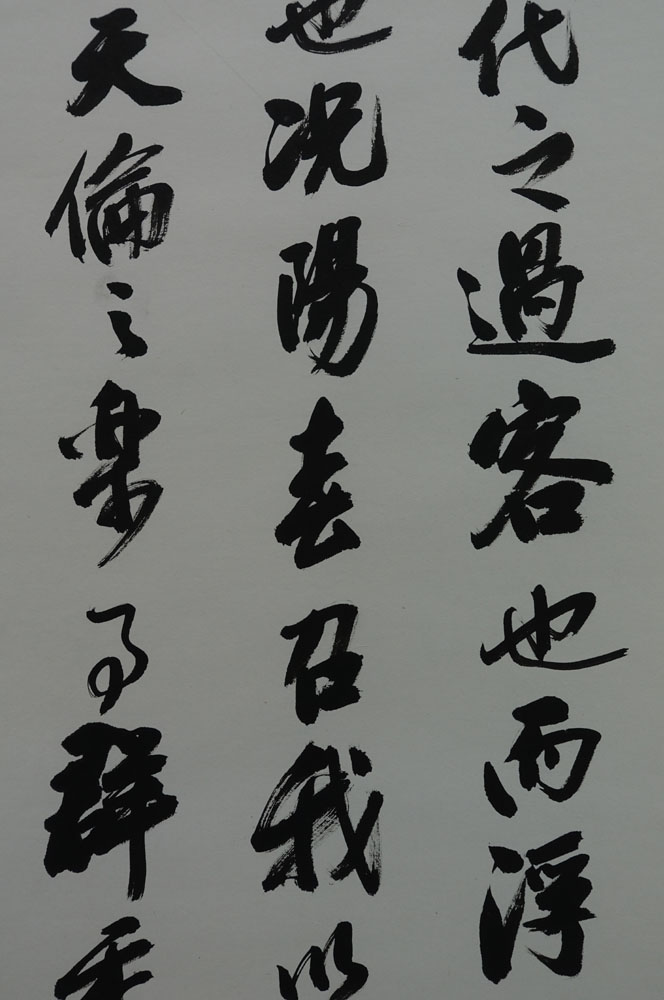 代之過客也而浮
也况陽春召我以
天倫之樂事群季